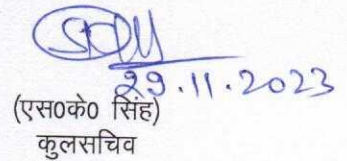 29.11.2023
(एस0के0 सिंह)
कुलसचिव